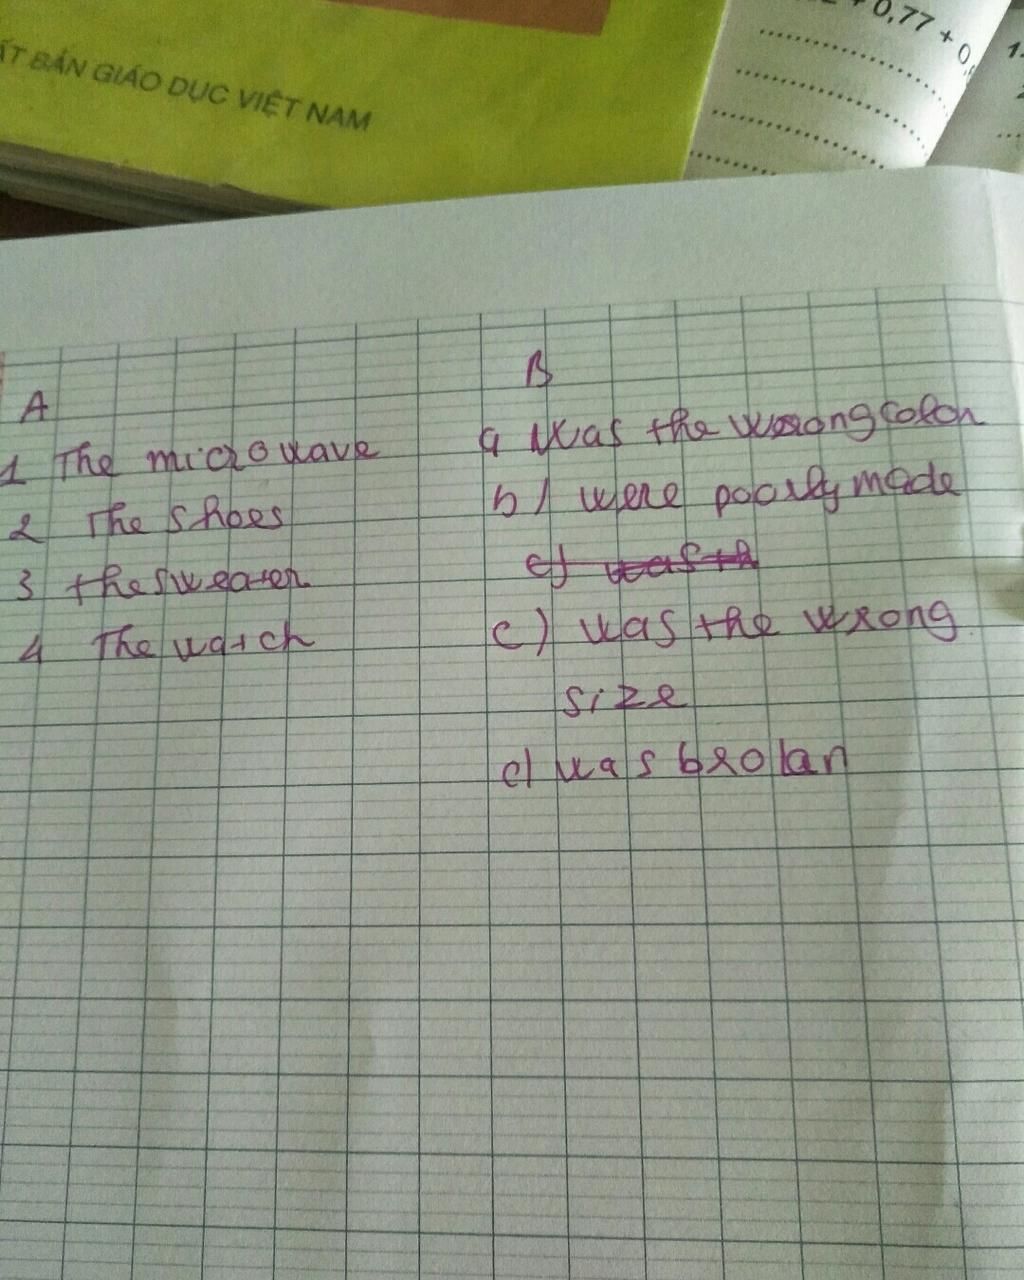 ẤT BẢN GIÁO DỤC VIỆT NAM
+ 0,77 + 0,
1.
2
A
B
1 The microwave
a was the wrong color
2 The shoes
b) were poorly made
3 the sweater
c) was th
4 The watch
c) was the wrong
size
d) was brolan